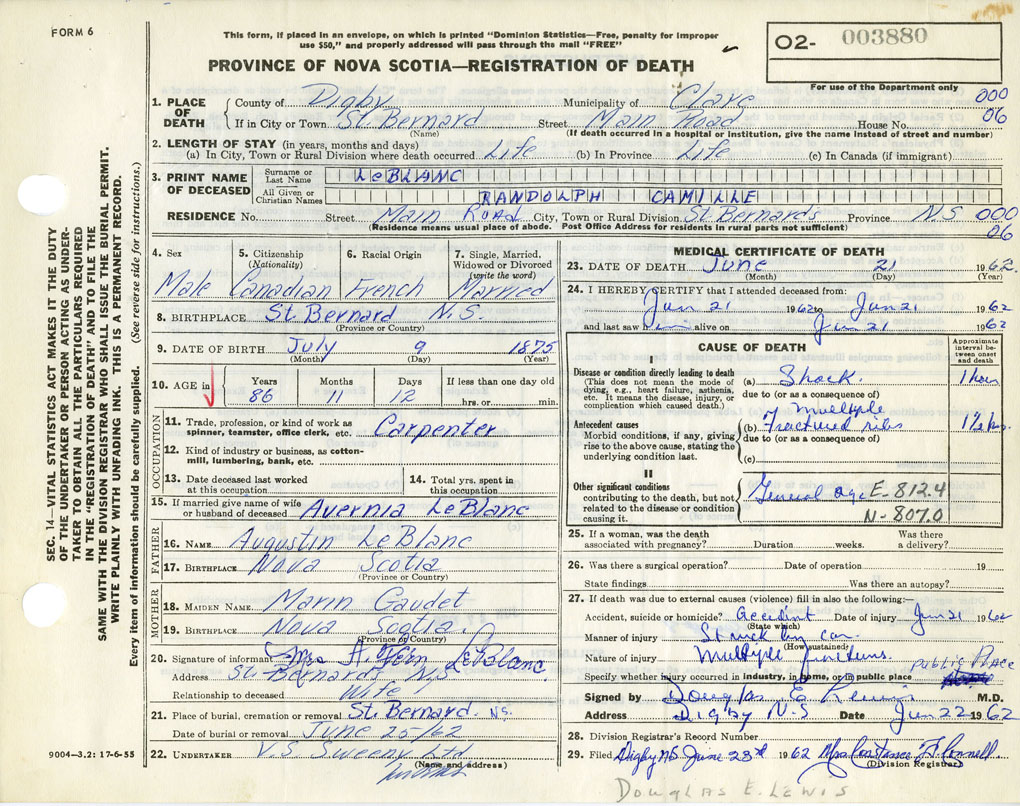 FORM 6
This form, if placed in an envelope, on which is printed "Dominion Statistics—Free, penalty for improper
use $50," and properly addressed will pass through the mail "FREE"
O2- 003880
For use of the Department only
PROVINCE OF NOVA SCOTIA—REGISTRATION OF DEATH
1. PLACE OF DEATH
County of Digby Municipality of Clare 000
If in City or Town St Bernard Street Main Road House No. 06
(Name) (If death occurred in a hospital or institution, give the name instead of street and number)
2. LENGTH OF STAY (in years, months and days)
(a) In City, Town or Rural Division where death occurred Life (b) In Province Life (c) In Canada (if immigrant)
3. PRINT NAME OF DECEASED
Surname or Last Name LeBLANC
All Given or Christian Names RANDOLPH CAMILLE
RESIDENCE No. Street Main Road City, Town or Rural Division St Bernards Province NS 000
(Residence means usual place of abode. Post Office Address for residents in rural parts not sufficient) 06
4. Sex 5. Citizenship (Nationality) 6. Racial Origin 7. Single, Married, Widowed or Divorced (write the word)
Male Canadian French Married
8. BIRTHPLACE St. Bernard N.S.
(Province or Country)
9. DATE OF BIRTH July 9 1875
(Month) (Day) (Year)
10. AGE in Years Months Days If less than one day old
86 11 12 hrs. or min.
OCCUPATION
11. Trade, profession, or kind of work as
spinner, teamster, office clerk, etc. Carpenter
12. Kind of industry or business, as cotton-
mill, lumbering, bank, etc.
13. Date deceased last worked
at this occupation
14. Total yrs. spent in
this occupation
15. If married give name of wife
or husband of deceased Avernia LeBlanc
FATHER
16. NAME Augustin LeBlanc
17. BIRTHPLACE Nova Scotia
(Province or Country)
MOTHER
18. MAIDEN NAME Gaudet
19. BIRTHPLACE Nova Scotia
(Province or Country)
20. Signature of informant Mrs A. LeBlanc
Address St Bernards N.S
Relationship to deceased Wife
21. Place of burial, cremation or removal St. Bernard. NS.
Date of burial or removal June 25/62
22. UNDERTAKER V.S. Sweeny Ltd
(Name and address)
9004—3.2: 17-6-55
SEC. 14—VITAL STATISTICS ACT MAKES IT THE DUTY
OF THE UNDERTAKER OR PERSON ACTING AS UNDER-
TAKER TO OBTAIN ALL THE PARTICULARS REQUIRED
IN THE "REGISTRATION OF DEATH" AND TO FILE THE
SAME WITH THE DIVISION REGISTRAR WHO SHALL ISSUE THE BURIAL PERMIT.
WRITE PLAINLY WITH UNFADING INK. THIS IS A PERMANENT RECORD.
Every item of information should be carefully supplied. (See reverse side for instructions.)
MEDICAL CERTIFICATE OF DEATH
23. DATE OF DEATH June 21 1962.
(Month) (Day) (Year)
24. I HEREBY CERTIFY that I attended deceased from:
Jun 21 1962 to Jun 21 1962
and last saw him alive on Jun 21 1962
CAUSE OF DEATH
Approximate interval be-tween onset and death
I
Disease or condition directly leading to death
(This does not mean the mode of
dying, e.g., heart failure, asthenia,
etc. It means the disease, injury, or
complication which caused death.)
(a) Shock. 1 hour
due to (or as a consequence of)
Antecedent causes
Morbid conditions, if any, giving
rise to the above cause, stating the
underlying condition last.
Multiple
(b) Fractured ribs 1½ hrs.
due to (or as a consequence of)
(c)
II
Other significant conditions
contributing to the death, but not
related to the disease or condition
causing it.
General age E-812.4
N-807.0
25. If a woman, was the death
associated with pregnancy? Duration weeks. Was there
a delivery?
26. Was there a surgical operation? Date of operation 19
State findings Was there an autopsy?
27. If death was due to external causes (violence) fill in also the following:—
Accident, suicide or homicide? Accident Date of injury Jun 21 1962
(State which)
Manner of injury Struck by car.
(How sustained)
Nature of injury Multiple fractures.
Specify whether injury occurred in industry, in home, or in public place PUBLIC PLACE
Signed by Douglas E Lewis M.D.
Address Digby N.S Date Jun 22 1962
28. Division Registrar's Record Number
29. Filed Digby NS June 23rd 1962 Mrs Constance
(Division Registrar)
DOUGLAS E. LEWIS